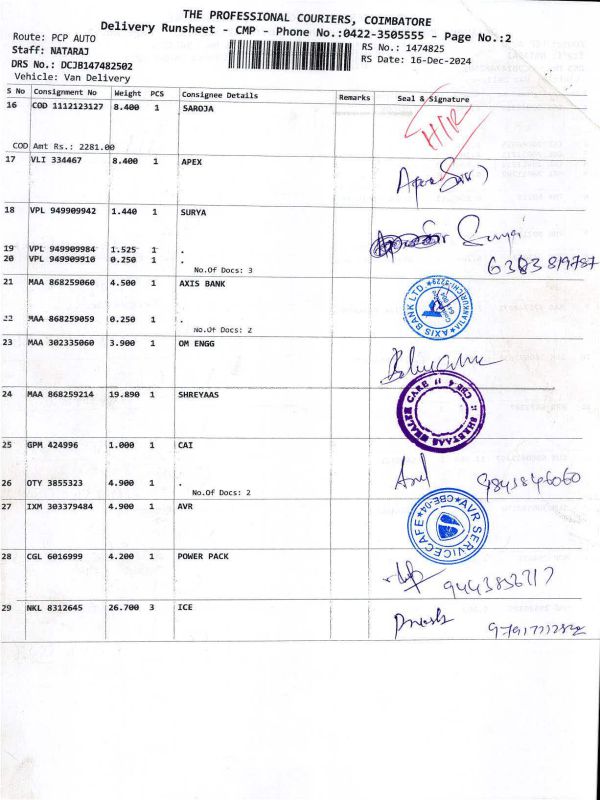 THE PROFESSIONAL COURIERS, COIMBATORE
Delivery Runsheet - CMP - Phone No.:0422-3505555 - Page No.:2
Route: PCP AUTO
RS No.: 1474825
Staff: NATARAJ
RS Date: 16-Dec-2024
DRS No.: DCJB147482502
Vehicle: Van Delivery
S No Consignment No Weight PCS Consignee Details Remarks Seal & Signature
16 COD 1112123127 8.400 1 SAROJA
COD Amt Rs.: 2281.00
17 VLI 334467 8.400 1 APEX
18 VPL 949909942 1.440 1 SURYA
19 VPL 949909984 1.525 1 .
20 VPL 949909910 0.250 1 .
No.Of Docs: 3
6383819787
21 MAA 868259060 4.500 1 AXIS BANK
AXIS BANK LTD
22 MAA 868259059 0.250 1 .
No.Of Docs: 2
23 MAA 302335060 3.900 1 OM ENGG
24 MAA 868259214 19.890 1 SHREYAAS
25 GPM 424996 1.000 1 CAI
26 OTY 3855323 4.900 1 .
No.Of Docs: 2
9843846060
27 IXM 303379484 4.900 1 AVR
AVR SERVICECAFE CBE-04
28 CGL 6016999 4.200 1 POWER PACK
29 NKL 8312645 26.700 3 ICE